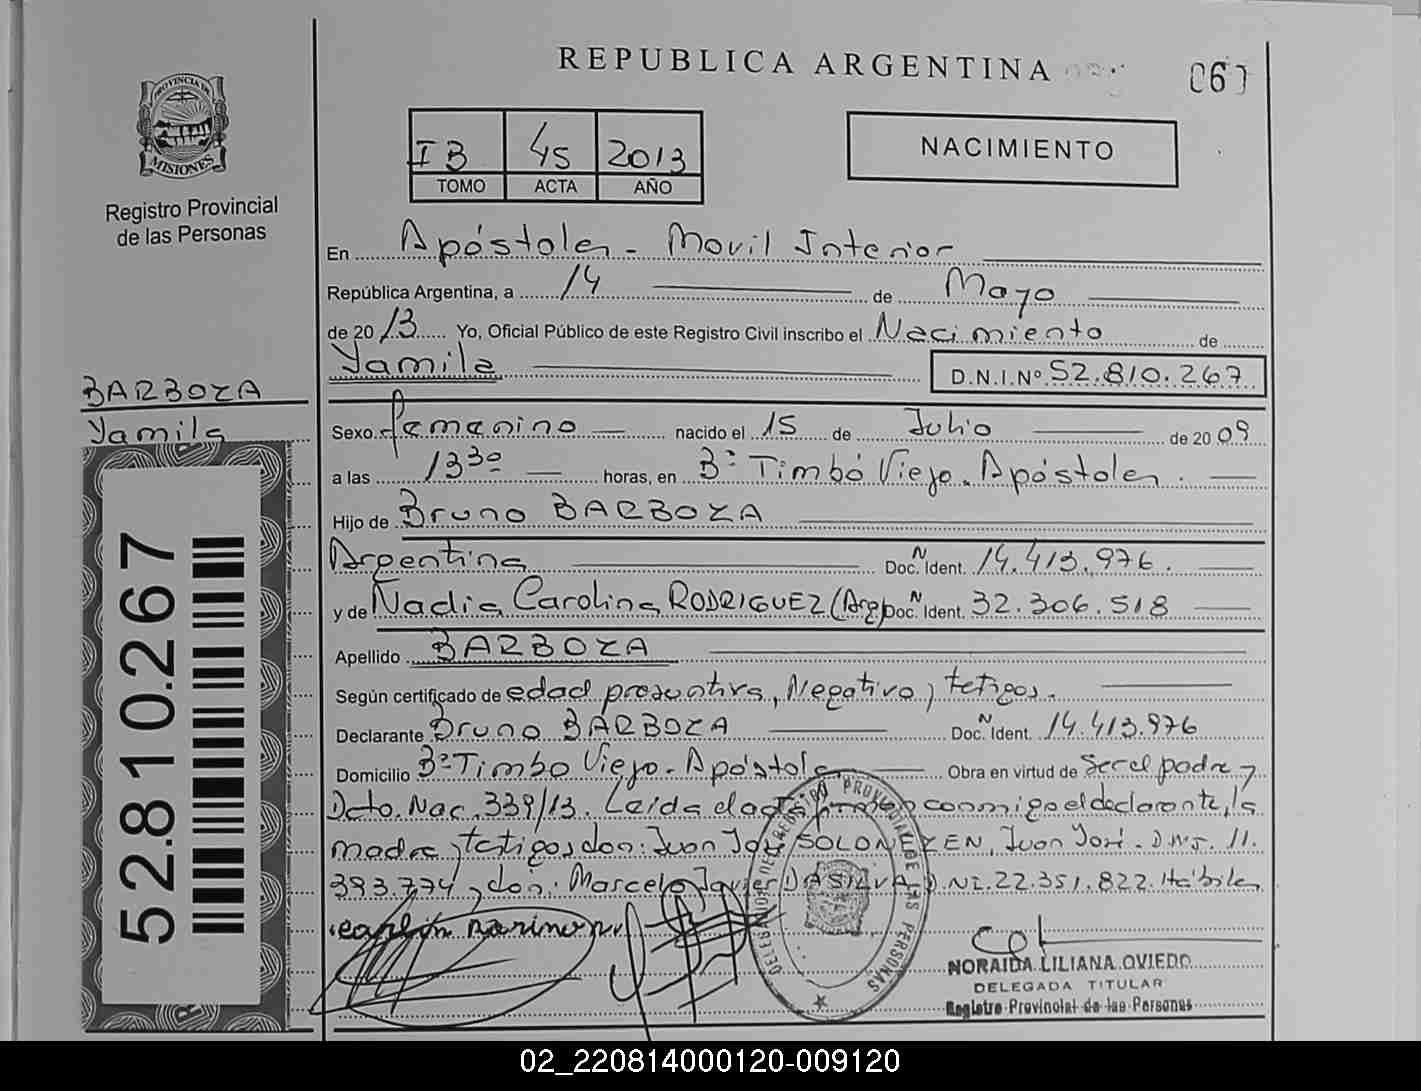 REPUBLICA ARGENTINA
061
PROVINCIA DE
MISIONES
Registro Provincial
de las Personas
IB 45 2013
TOMO ACTA AÑO
NACIMIENTO
En Apóstoles - Movil Interior
República Argentina, a 14 de Mayo
de 20 13 Yo, Oficial Público de este Registro Civil inscribo el Nacimiento de
Yamila D.N.I.Nº 52.810.267
BARBOZA
Yamila
Sexo femenino nacido el 15 de Julio de 20 09
a las 13 30 horas, en Bº Timbó Viejo - Apóstoles.
Hijo de Bruno BARBOZA
Argentina Doc. N Ident. 14.413.976.
y de Nadia Carolina RODRIGUEZ (Arg) Doc. N Ident. 32.306.518
Apellido BARBOZA
Según certificado de edad presuntiva, Negativo y testigos.
Declarante Bruno BARBOZA Doc. N Ident. 14.413.976
Domicilio Bº Timbo Viejo - Apóstoles Obra en virtud de Ser el padre y
Dcto. Nac. 339/13. Leida el acta firman conmigo el declarante, la
madre y testigos don: Juan José SOLONEZEN, Juan José - DNI. 11.
393.774 y don: Marcelo Javier DASILVA D.NI. 22.351.822. Hábiles
52810267
DELEGACION DEL REGISTRO PROVINCIAL DE LAS PERSONAS
NORAIDA LILIANA OVIEDO
DELEGADA TITULAR
Registro Provincial de las Personas
02_220814000120-009120